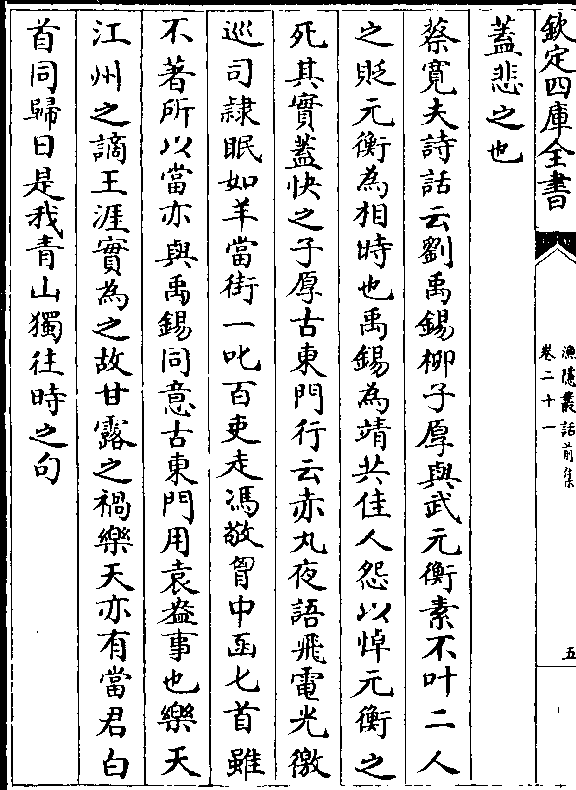 欽定四庫全書
漁隱叢話前集
卷二十一
五
蓋悲之也
蔡寛夫詩話云劉禹錫柳子厚與武元衡素不叶二人
之貶元衡為相時也禹錫為靖共佳人怨以悼元衡之
死其實蓋快之子厚古東門行云赤丸夜語飛電光徼
巡司隷眠如羊當街一叱百吏走馮敬胷中函匕首雖
不著所以當亦與禹錫同意古東門用袁盎事也樂天
江州之謫王涯實為之故甘露之禍樂天亦有當君白
首同歸日是我青山獨往時之句